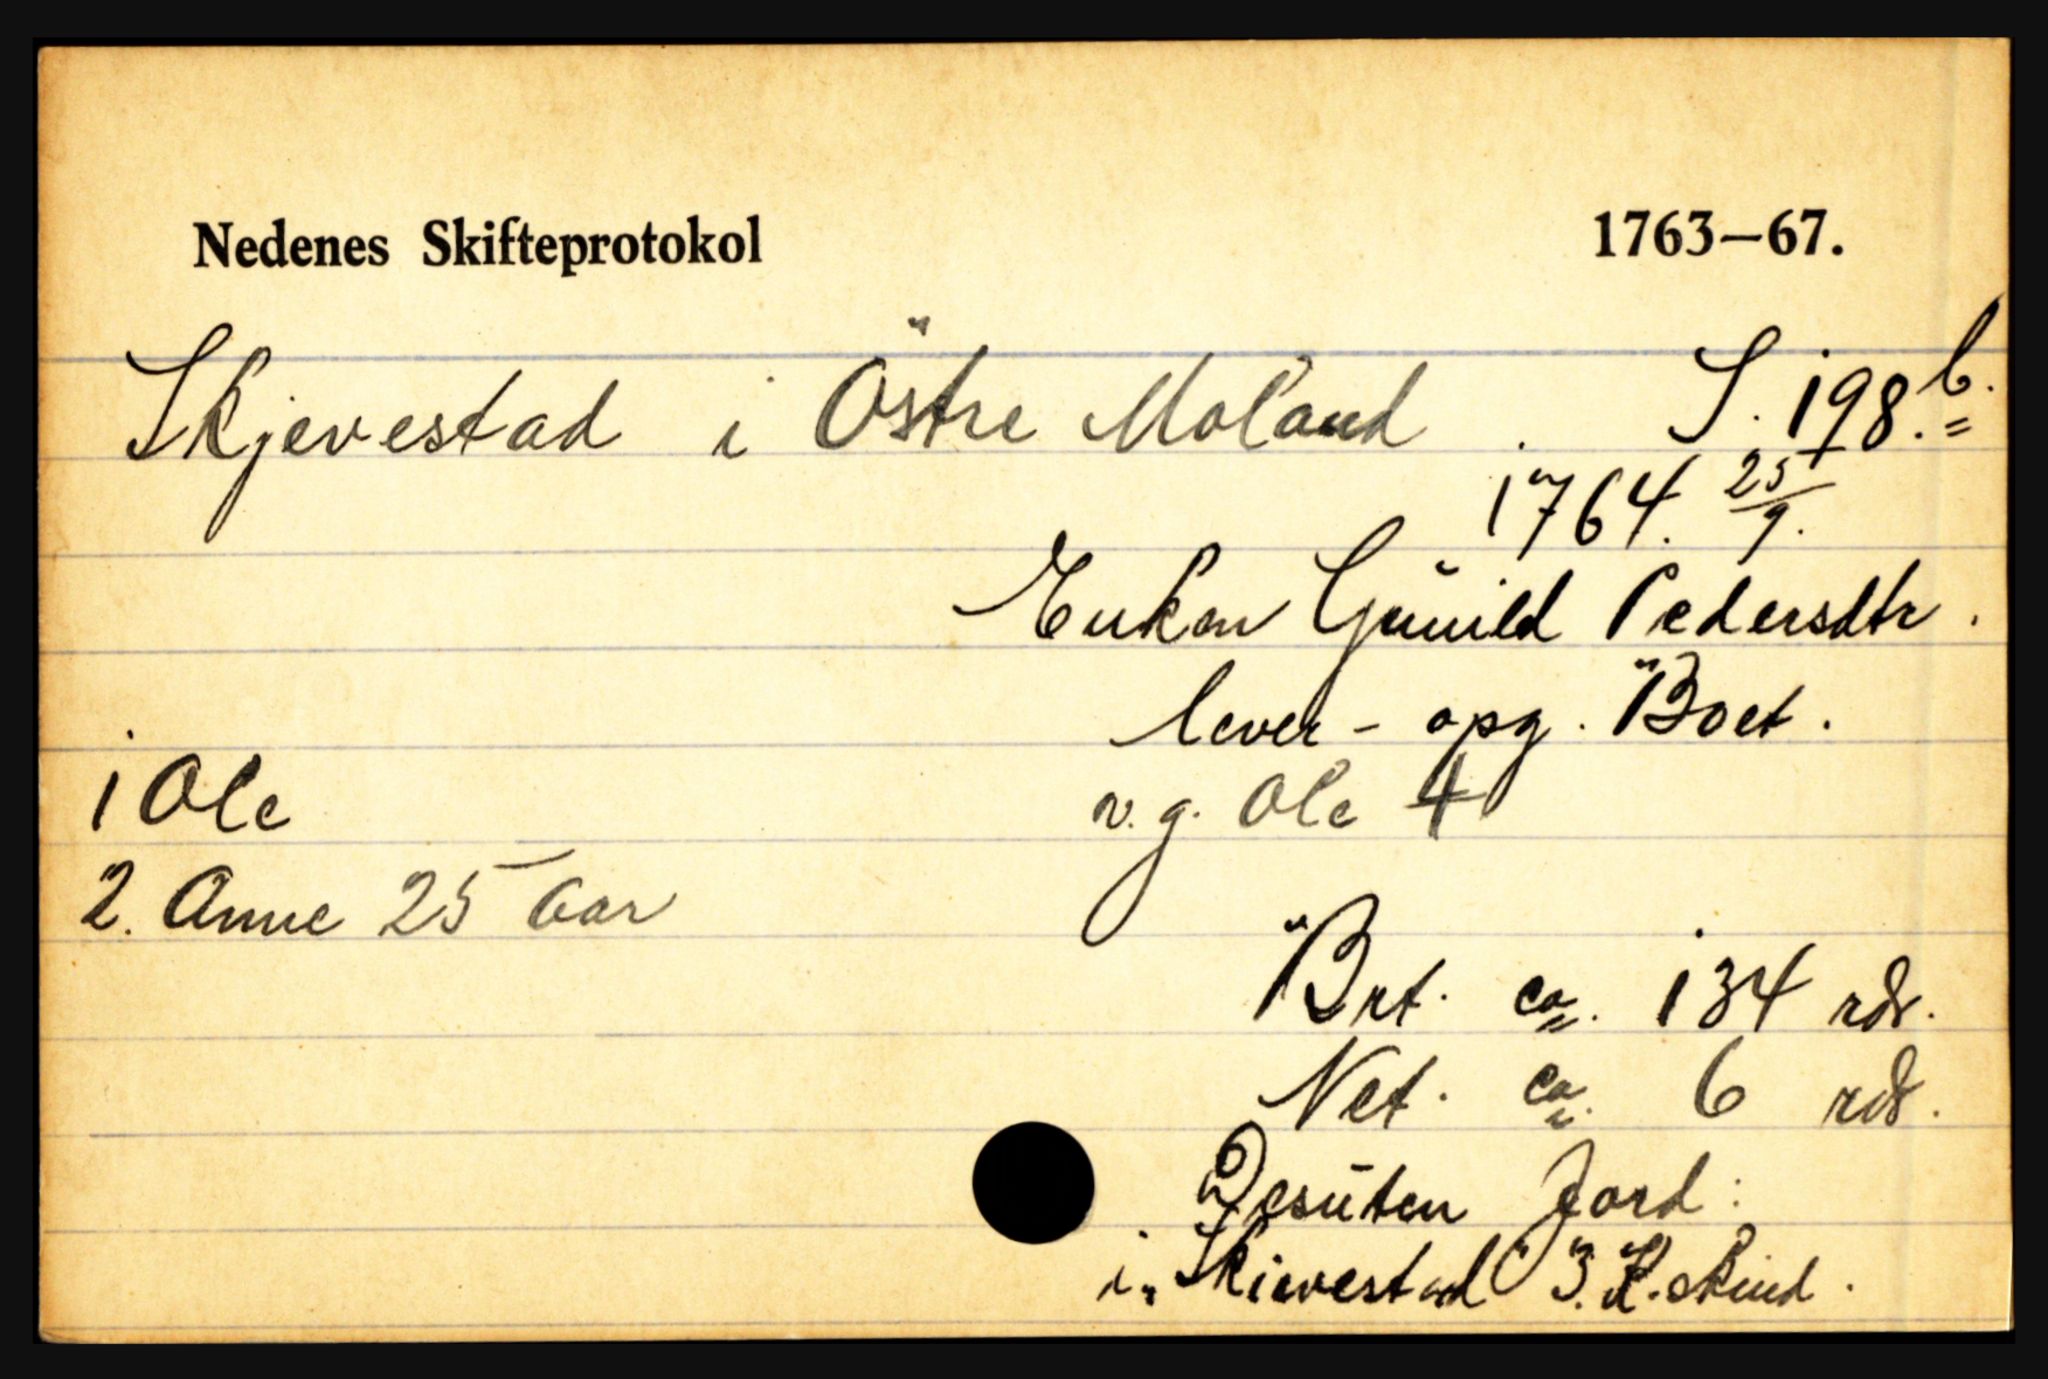 Nedenes Skifteprotokol 1763–67.
Skjevestad i Östre Moland. S. 198.b.
1764. 25/9.
Enken Gunild Pedersdtr.
lever - opg. Boet.
v. g. Ole 4
1 Ole
2. Anne 25 aar
Brt. ca. 134 rdr.
Net. ca. 6 rdr.
Desuten Jord:
i. Skievestad 3. H. skind.